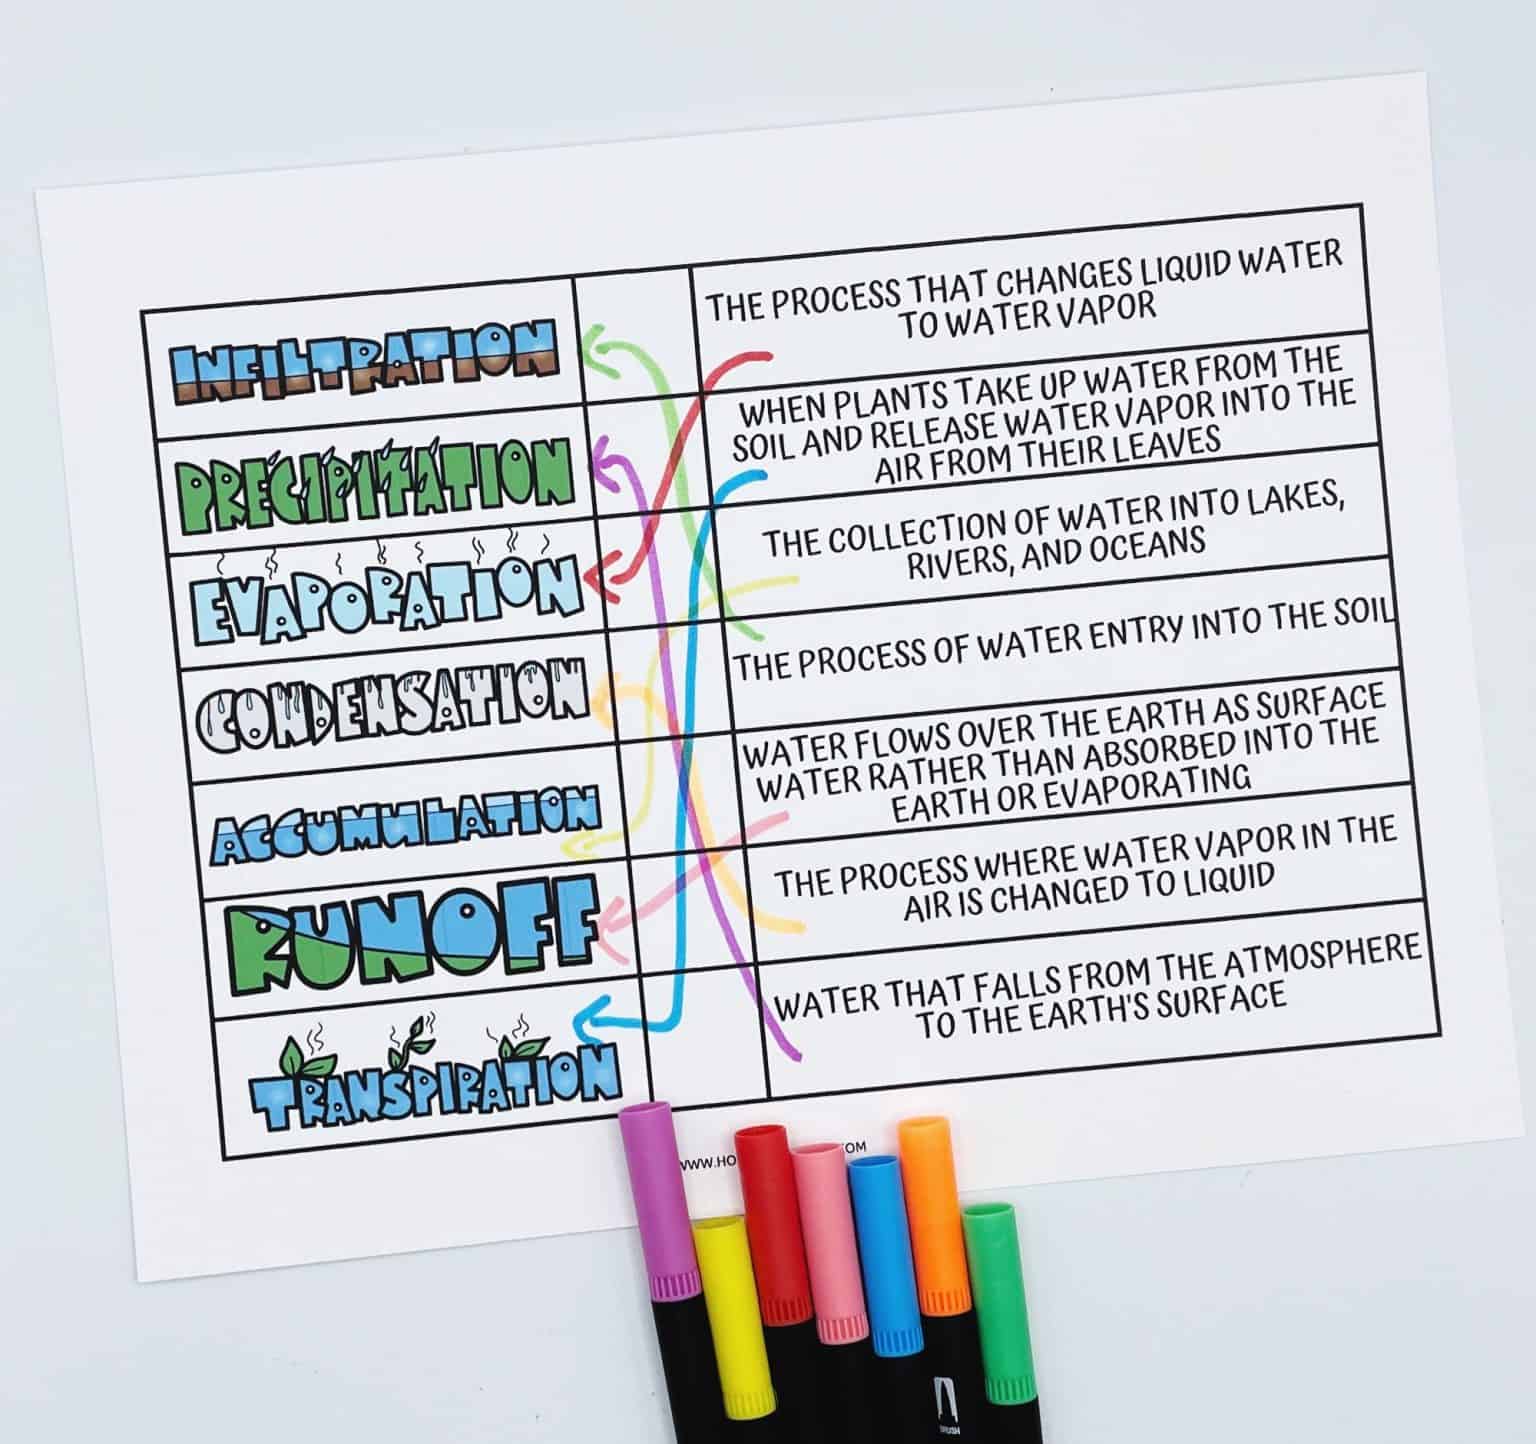 INFILTRATION
THE PROCESS THAT CHANGES LIQUID WATER
TO WATER VAPOR
PRECIPITATION
WHEN PLANTS TAKE UP WATER FROM THE
SOIL AND RELEASE WATER VAPOR INTO THE
AIR FROM THEIR LEAVES
EVAPORATION
THE COLLECTION OF WATER INTO LAKES,
RIVERS, AND OCEANS
CONDENSATION
THE PROCESS OF WATER ENTRY INTO THE SOIL
ACCUMULATION
WATER FLOWS OVER THE EARTH AS SURFACE
WATER RATHER THAN ABSORBED INTO THE
EARTH OR EVAPORATING
RUNOFF
THE PROCESS WHERE WATER VAPOR IN THE
AIR IS CHANGED TO LIQUID
TRANSPIRATION
WATER THAT FALLS FROM THE ATMOSPHERE
TO THE EARTH'S SURFACE
BRUSH